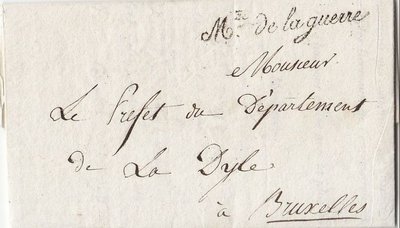 M.re de la guerre
Monsieur
Le Préfet du Département
de La Dyle
à Bruxelles